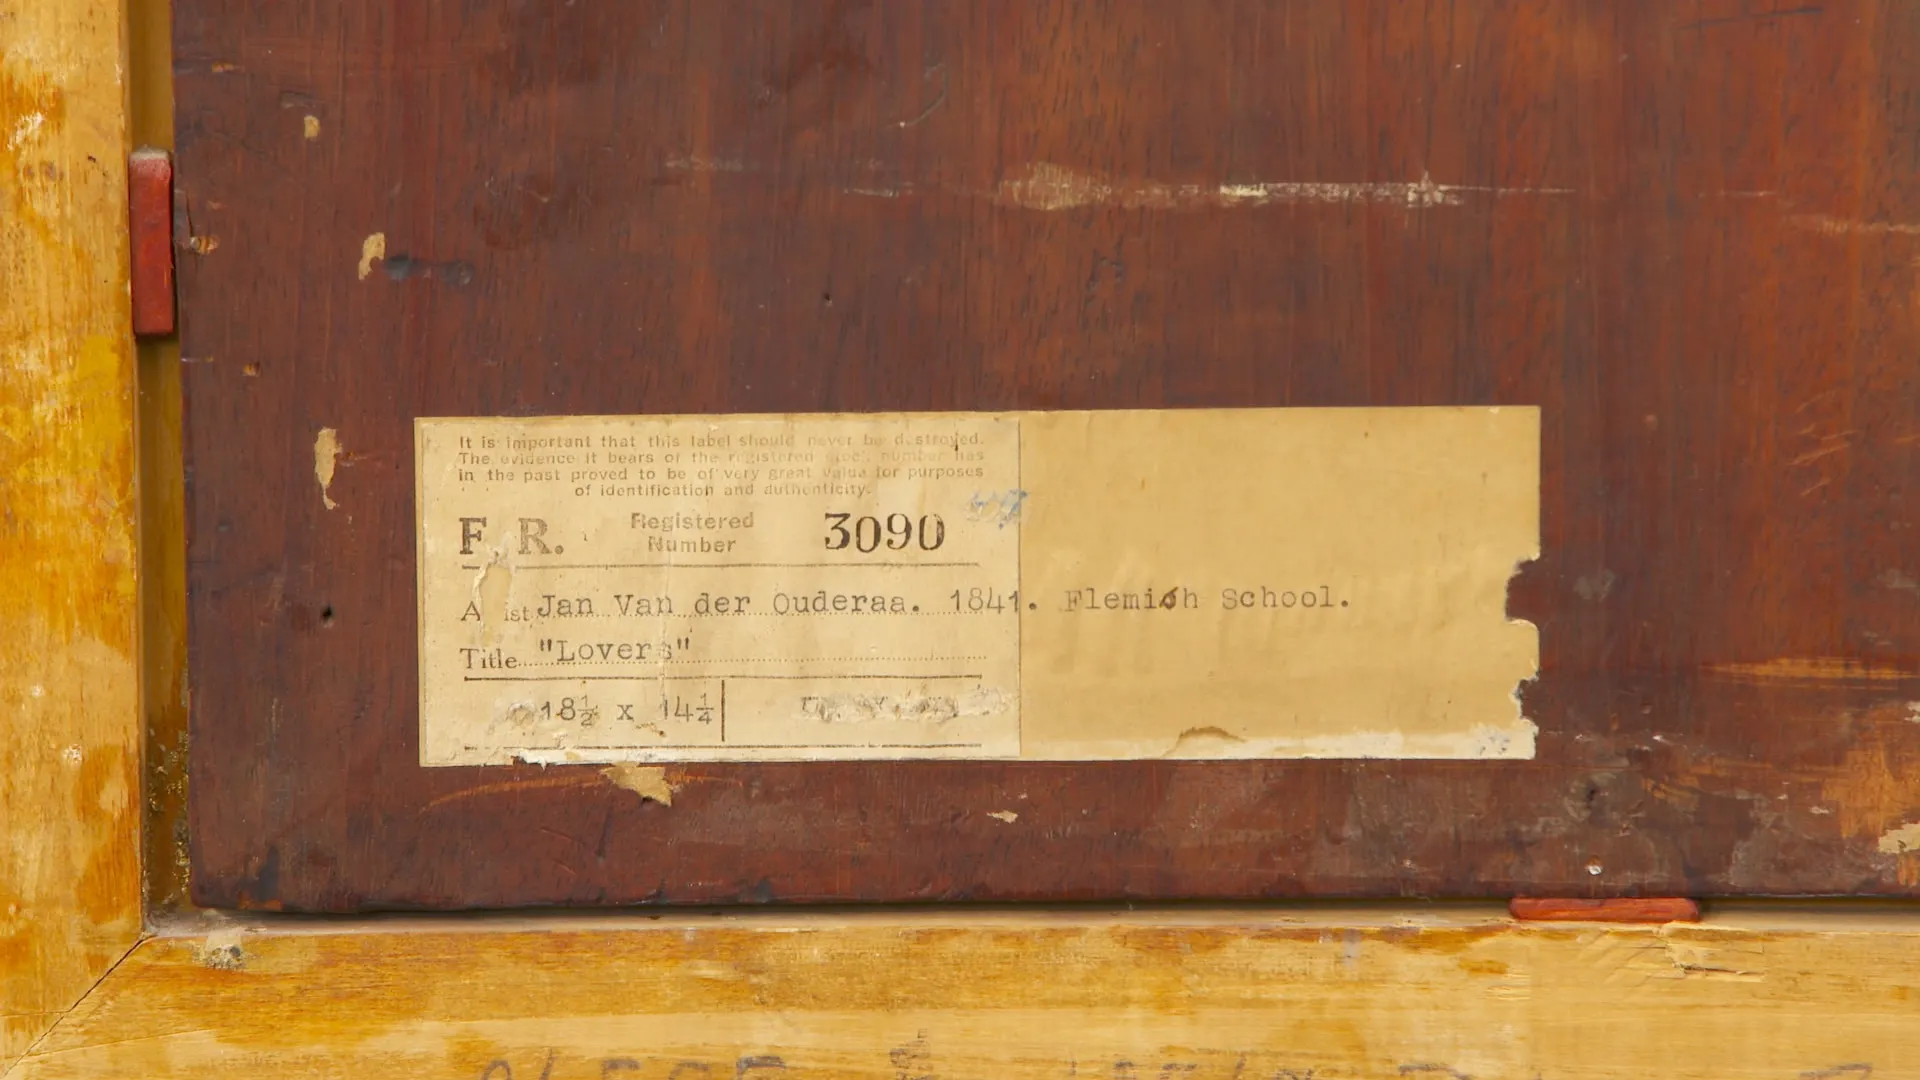 It is important that this label should never be destroyed.
The evidence it bears of the registered number has
in the past proved to be of very great value for purposes
of identification and authenticity.
F. R. Registered Number 3090
A ist Jan Van der Ouderaa. 1841. Flemish School.
Title "Lovers"
18½ x 14¼